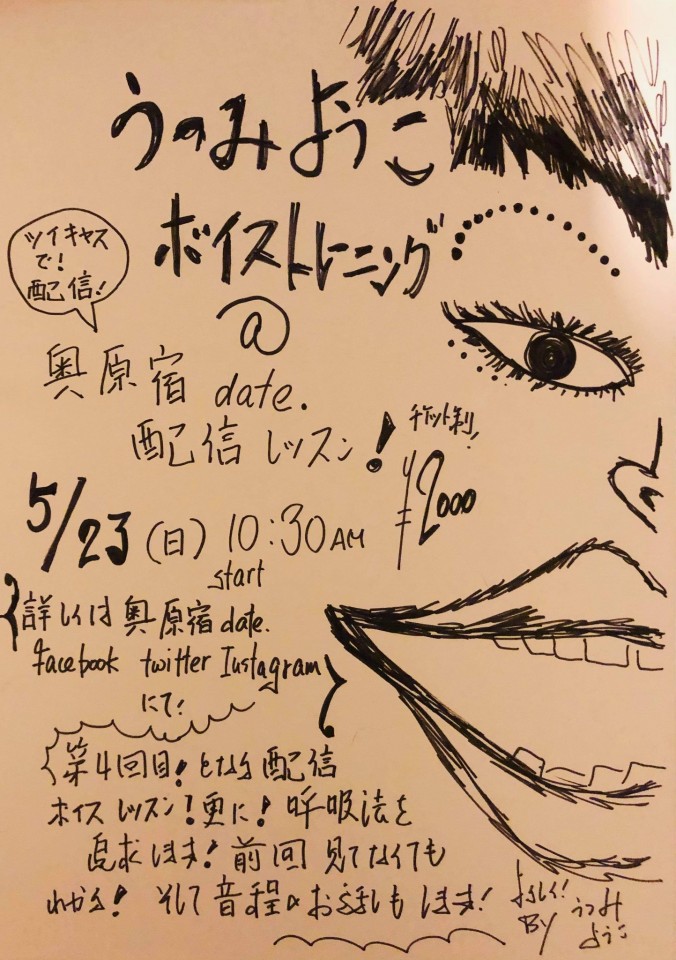 うつみようこ
ボイストレーニング
ツイキャス
で！
配信！
@
奥原宿 date.
配信レッスン！
チケット制！
¥2000
5/23(日) 10:30AM
start
詳しくは奥原宿date.
facebook twitter Instagram
にて！
第4回目！となる配信
ボイスレッスン！更に！呼吸法を
追求します！前回見てなくても
わかる！そして音程のお話しもします！
よろしく！
BY うつみ
ようこ